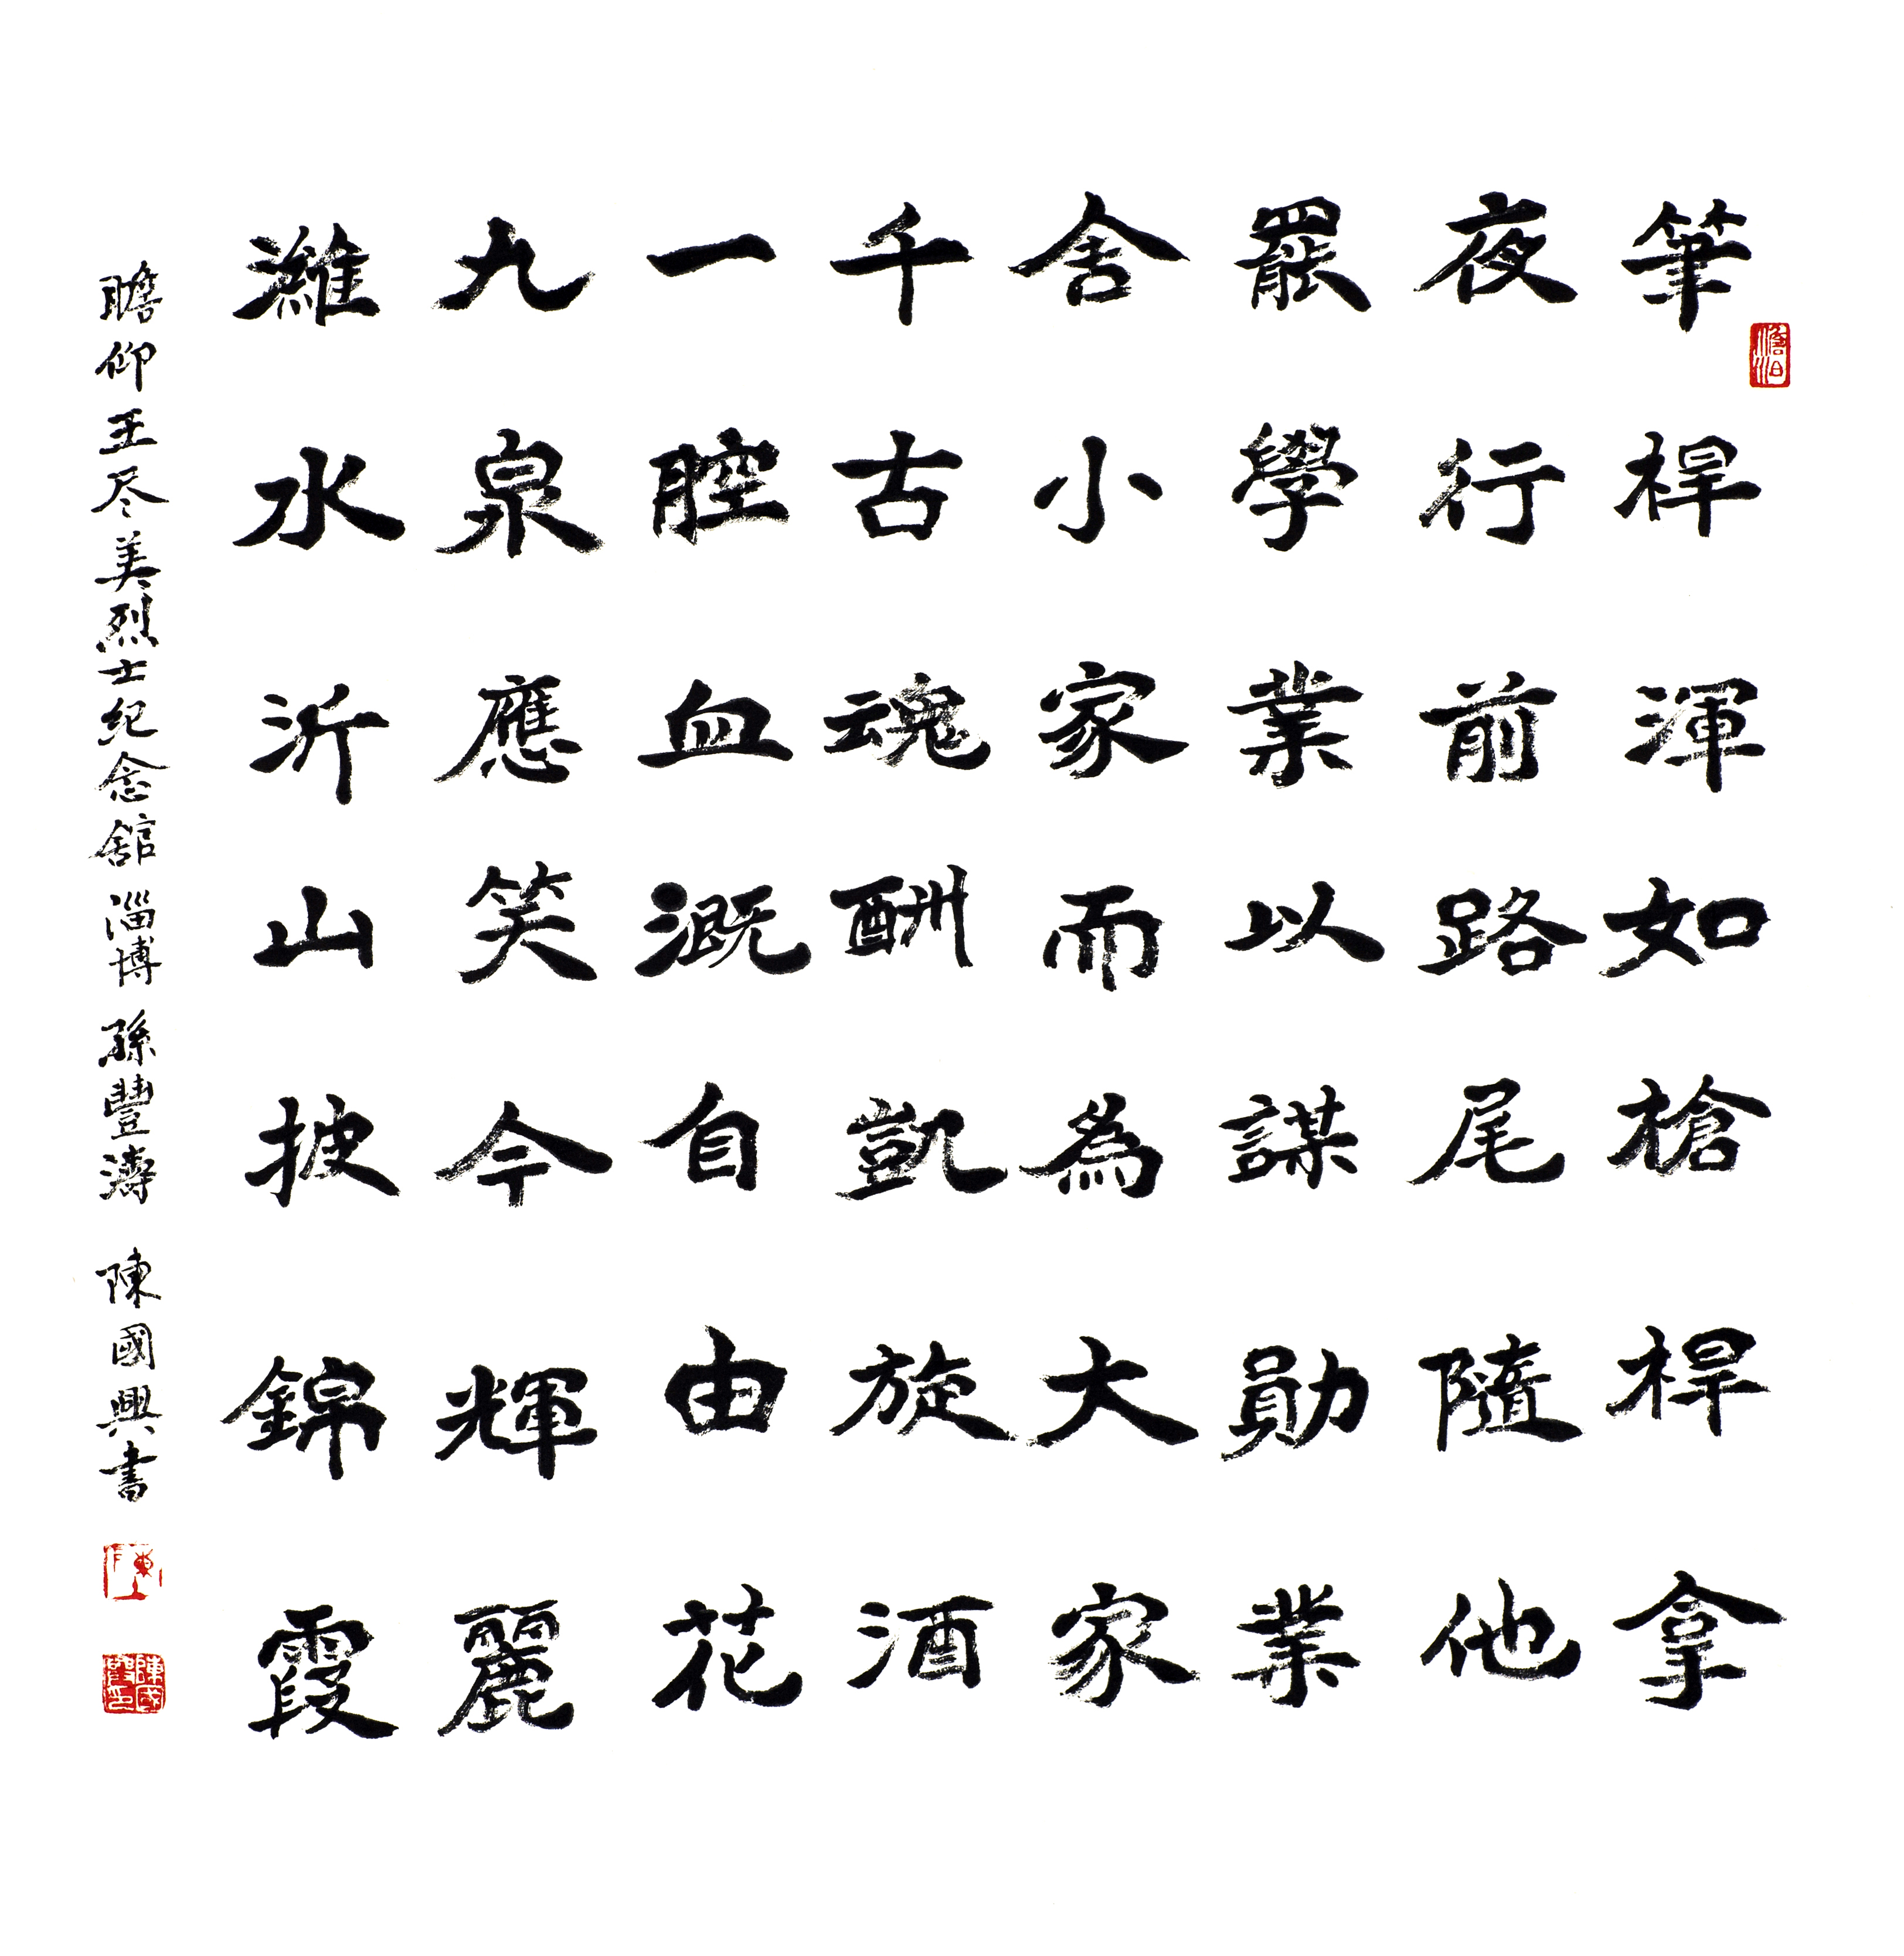 筆桿渾如槍桿拿
夜行前路尾隨他
罷學業以謀勛業
舍小家而為大家
千古魂酬凱旋酒
一腔血溉自由花
九泉應笑今輝麗
濰水沂山披錦霞
瞻仰王尽美烈士纪念館 淄博 孫豐濤 陳國興書